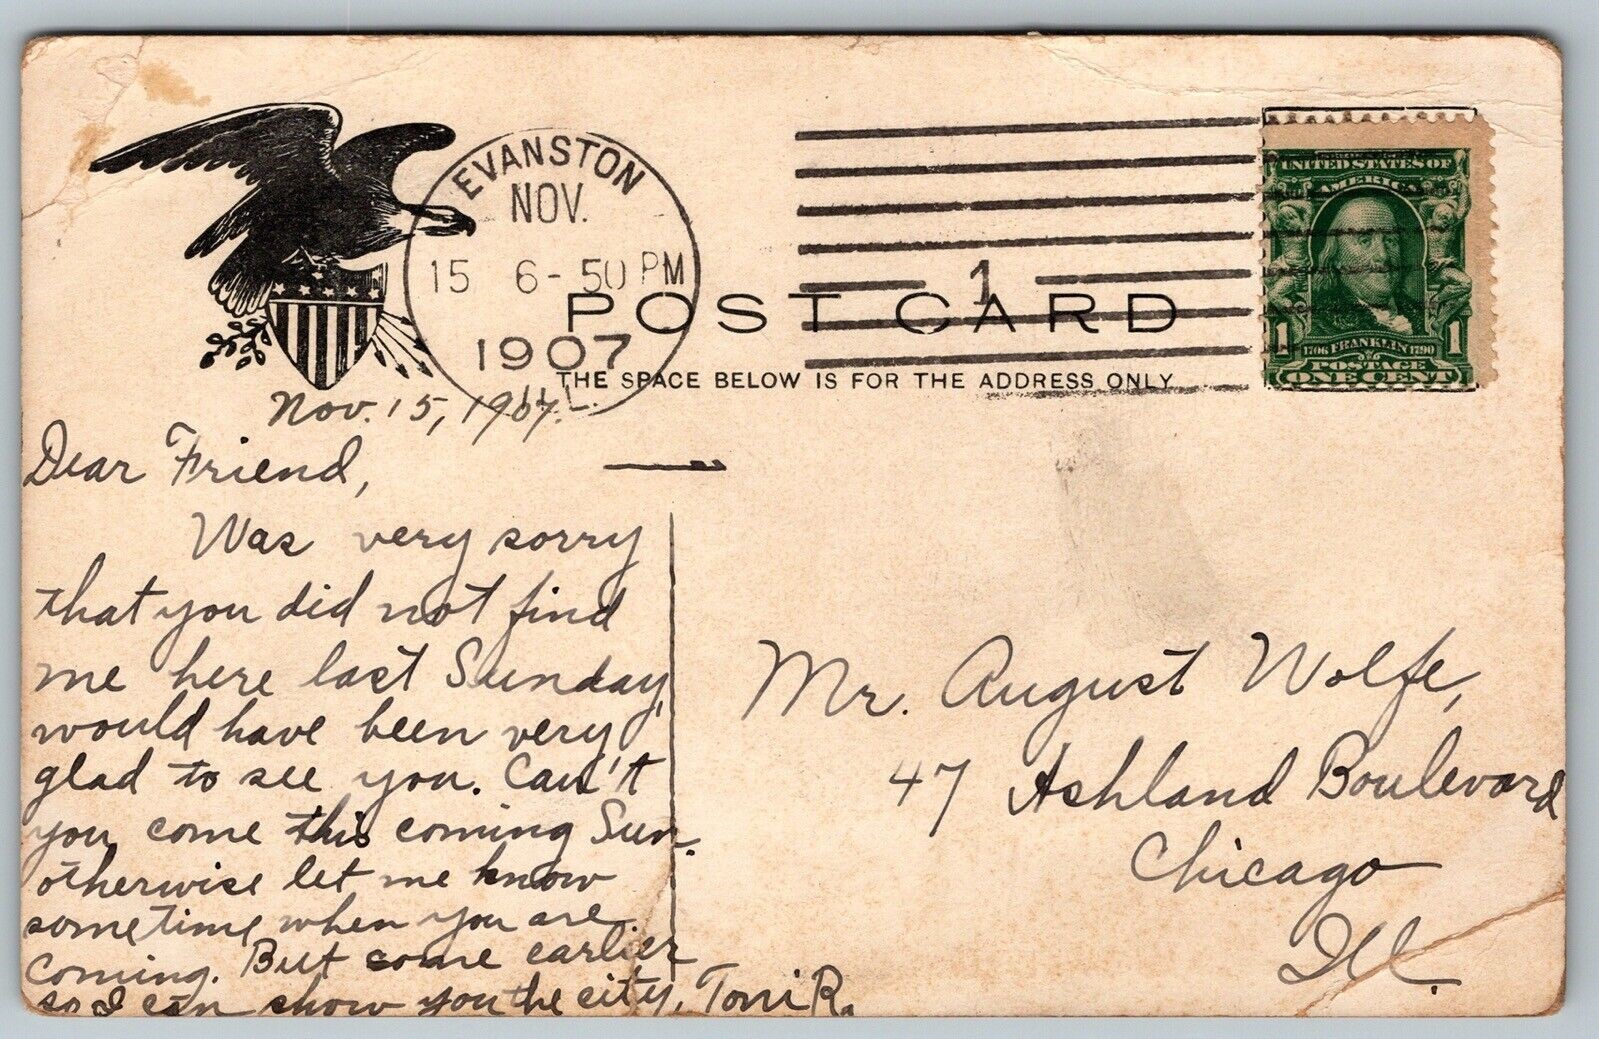 EVANSTON
NOV.
15 6-50 PM
1907
ILL.
1
POST CARD
THE SPACE BELOW IS FOR THE ADDRESS ONLY
UNITED STATES OF
AMERICA
1 1706 FRANKLIN 1790 1
POSTAGE
ONE CENT
Nov. 15, 1907.
Dear Friend,
Was very sorry
that you did not find
me here last Sunday,
would have been very
glad to see you. Can't
you come this coming Sun.
otherwise let me know
sometime when you are
coming. But come earlier
so I can show you the city, Toni R.
Mr. August Wolfe,
47 Ashland Boulevard
Chicago
Ill.